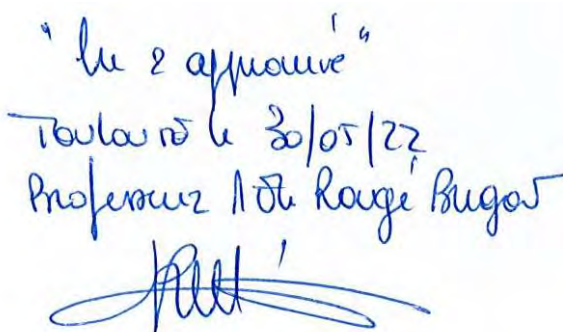 "lu & approuvé"
Toulouse le 30/05/22
Professeur M E Rougé Bugat